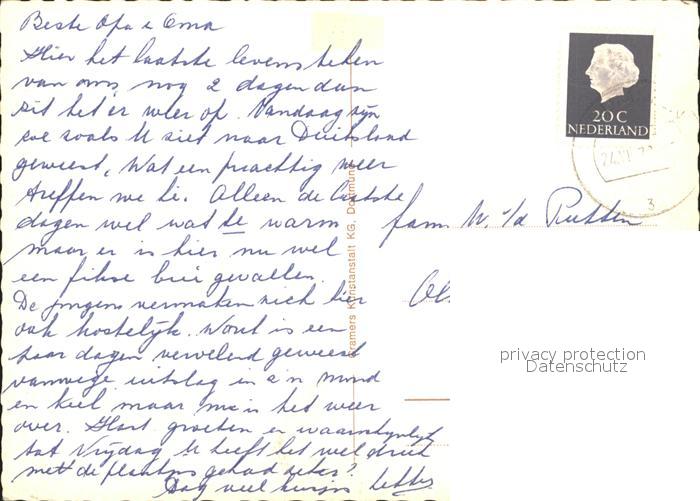 Beste Opa & Oma
Hier het laatste levensteken
van ons, nog 2 dagen dan
zit het er weer op. Vandaag zijn
we zoals U ziet naar Duitsland
geweest, Wat een prachtig weer
treffen we hè. Alleen de laatste
dagen wel wat te warm
maar er is hier nu wel
een fikse bui gevallen.
De jongens vermaken zich hier
ook kostelijk. Wout is een
paar dagen vervelend geweest
vanwege uitslag in z'n mond
en keel maar nu is het weer
over. Hart. groeten en waarschijnlijk
tot Vrijdag. U heeft het wel druk
met de plantjes gehad zeker?
Dag veel kusjes
fam. W. v/d Rutten
20 C
NEDERLAND
3
Kramers Kunstanstalt KG, Dortmund
privacy protection
Datenschutz